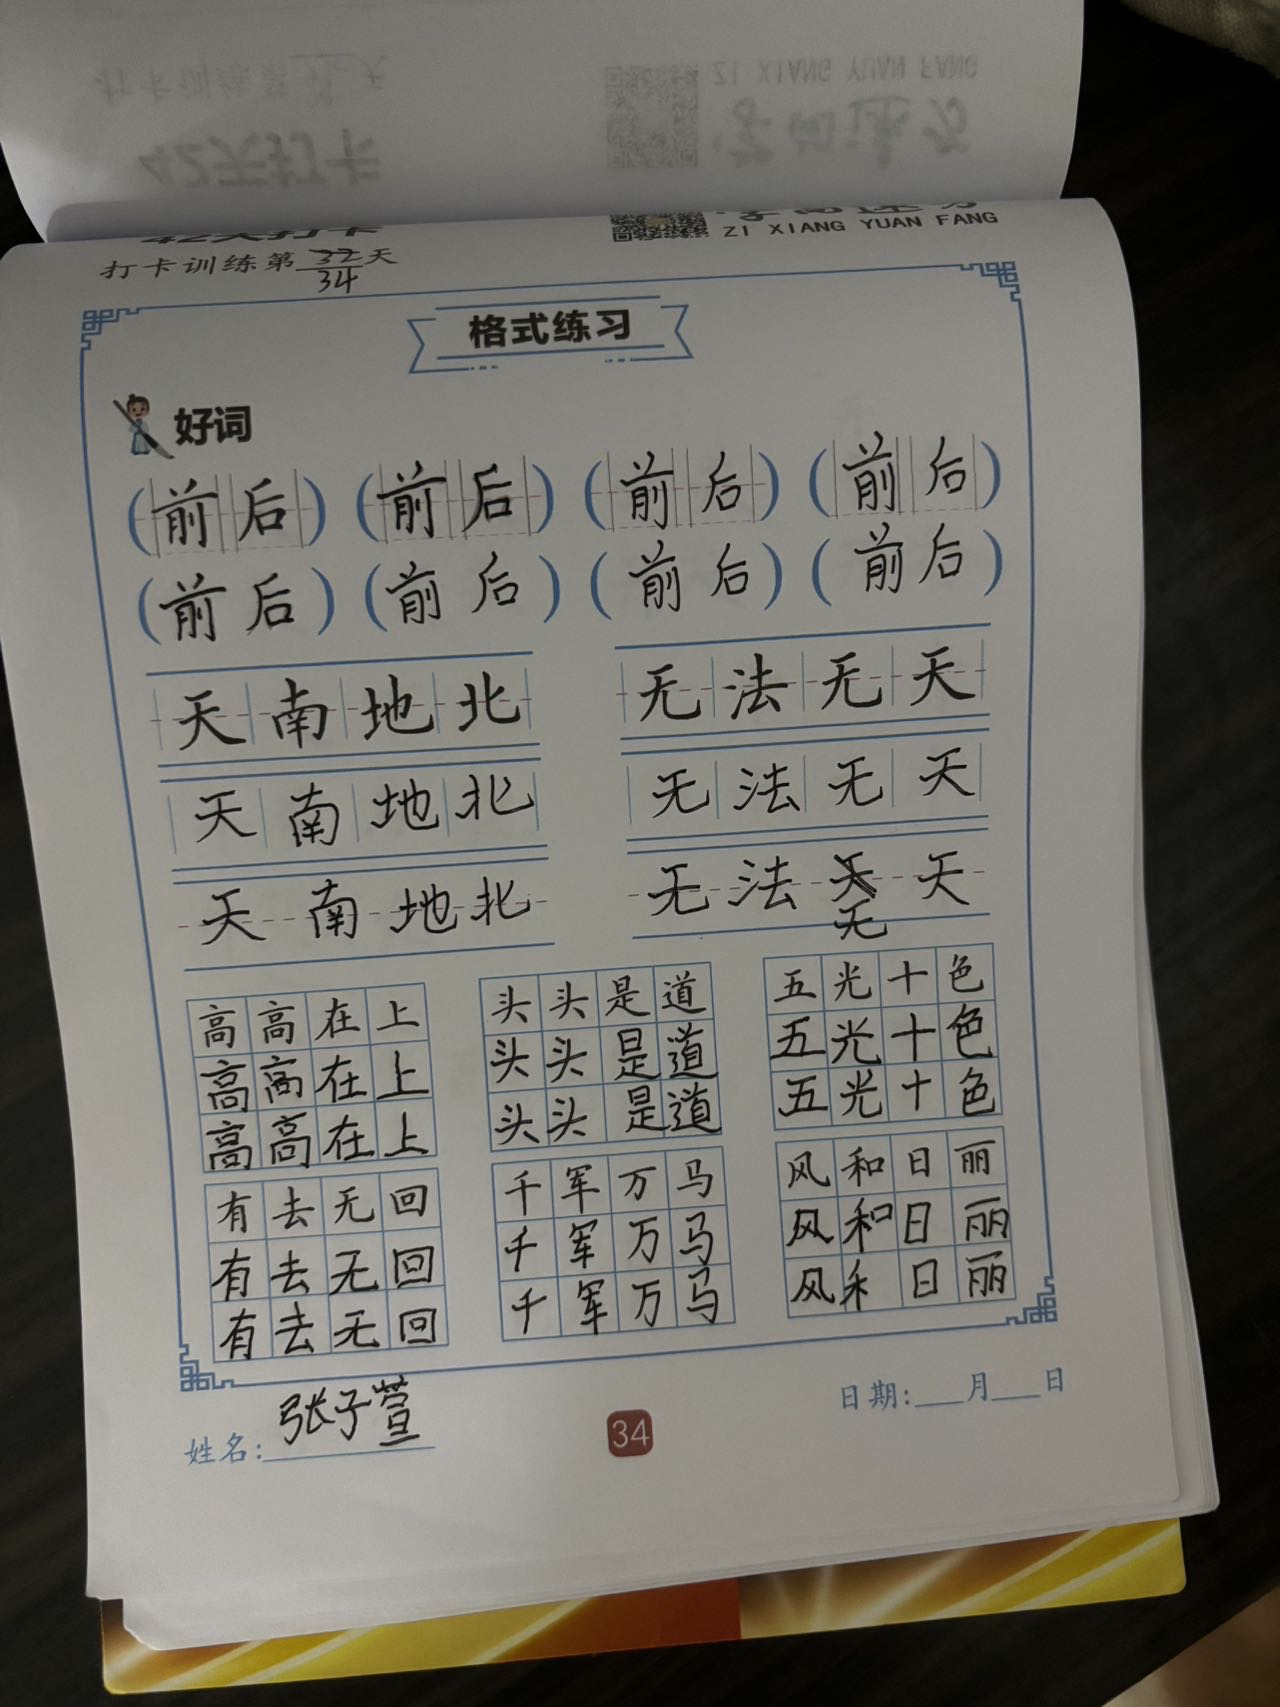 42天打卡
ZI XIANG YUAN FANG
打卡训练第32天
34
格式练习
好词
(前后) (前后) (前后) (前后)
(前后) (前后) (前后) (前后)
天南地北 无法无天
天南地北 无法无天
天南地北 无法天天
无
高高在上 头头是道 五光十色
高高在上 头头是道 五光十色
高高在上 头头是道 五光十色
有去无回 千军万马 风和日丽
有去无回 千军万马 风和日丽
有去无回 千军万马 风禾日丽
姓名:张子萱
34
日期:___月___日